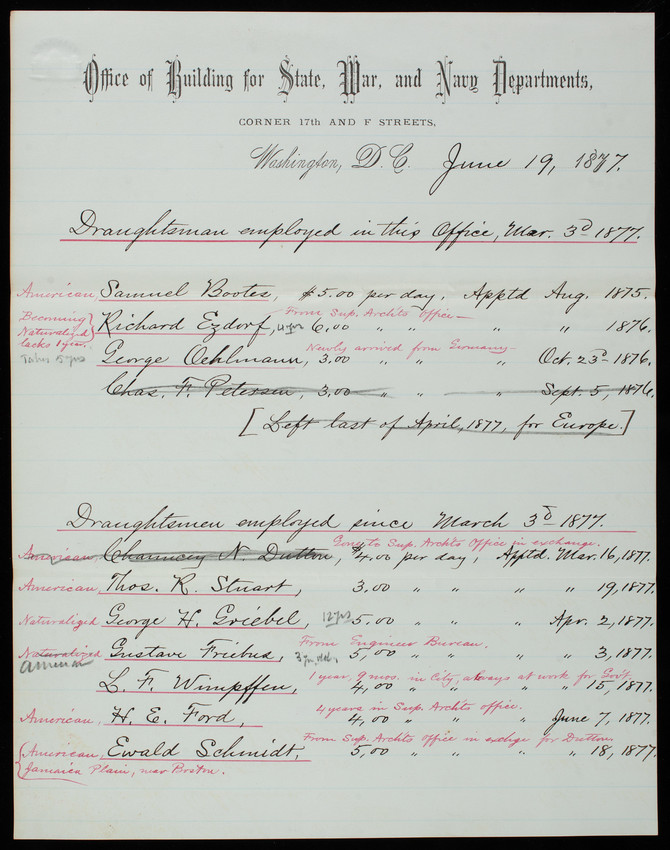 Office of Building for State, War, and Navy Departments,
CORNER 17th AND F STREETS,
Washington, D.C. June 19, 1877.
Draughtsman employed in this Office, Mar. 3d 1877.
American, Samuel Bootes, $5.00 per day, Apptd Aug. 1875.
Becoming Naturalized lacks 1 year.
From Sup. Archts Office—
Richard Ezdorf, 4 yrs 6,00 " " " " 1876.
Takes 5 yrs
Newly arrived from Germany—
George Oehlmann, 3,00 " " " Oct. 23d 1876.
Chas. F. Petersen, 3,00 " " " Sept. 5, 1876.
[Left last of April, 1877, for Europe.]
Draughtsmen employed since March 3d 1877.
Gone to Sup. Archts Office in exchange.
American, Chauncey N. Dutton, $4,00 per day, Apptd. Mar. 16, 1877.
American, Thos. R. Stuart, 3,00 " " " " 19, 1877.
Naturalized George H. Griebel, 12 yrs 5,00 " " " Apr. 2, 1877.
From Engineer Bureau.
Naturalized Gustave Friebus, 5,00 " " " " 3, 1877.
American
1 year, 9 mos. in City, always at work for Gov't.
L. F. Wimpffen, 4,00 " " " " 15, 1877.
4 years in Sup. Archts office.
American, H. E. Ford, 4,00 " " " June 7, 1877.
From Sup. Archts Office in exchge for Dutton
(American, Ewald Schmidt, 5,00 " " " " 18, 1877.
Jamaica Plain, near Boston.